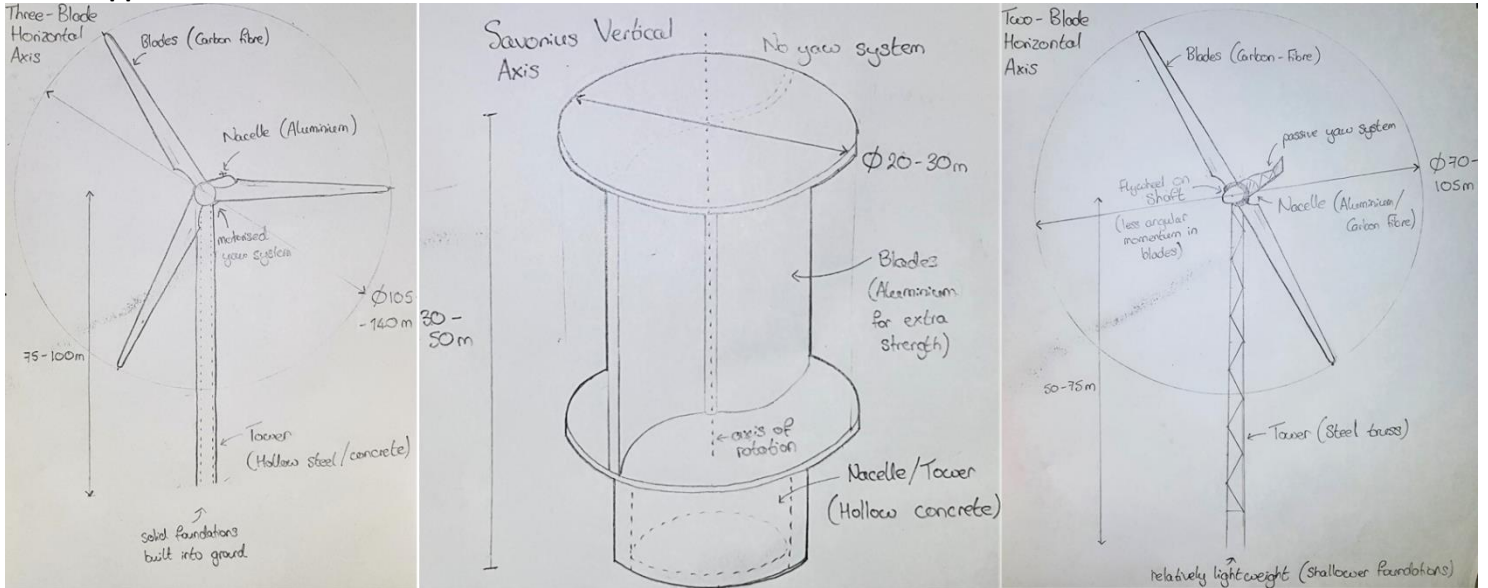 Three-Blade
Horizontal
Axis
Blades (Carbon fibre)
Nacelle (Aluminium)
motorised
yaw system
Ø105
-140m
75-100m
Tower
(Hollow steel/concrete)
solid foundations
built into ground
Savonius Vertical
Axis
No yaw system
Ø20-30m
30-
50m
Blades
(Aluminium
for extra
strength)
axis of
rotation
Nacelle/Tower
(Hollow concrete)
Two-Blade
Horizontal
Axis
Blades (Carbon-fibre)
passive yaw system
Ø70-
105m
Flywheel on
shaft
(less angular
momentum in
blades)
Nacelle (Aluminium/
Carbon fibre)
50-75m
Tower (Steel truss)
relatively lightweight (Shallower foundations)